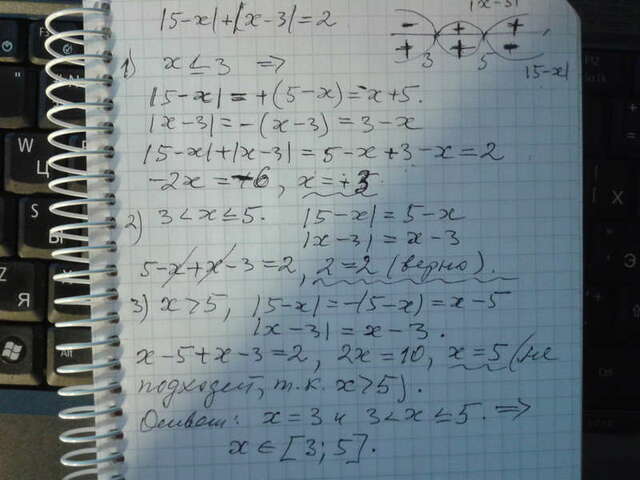 |5-x|+|x-3|=2
|x-3|
- + +
+ + -
3 5
|5-x|
1) x ≤ 3 =>
|5-x| = +(5-x) = -x+5.
|x-3| = -(x-3) = 3-x
|5-x|+|x-3| = 5-x+3-x=2
-2x = -6, x=+3
2) 3<x≤5. |5-x| = 5-x
|x-3| = x-3
5-x+x-3=2, 2=2 (верно).
3) x>5, |5-x|=-(5-x)=x-5
|x-3| = x-3.
x-5+x-3=2, 2x=10, x=5 (не
подходит, т.к. x>5).
Ответ: x=3 и 3<x≤5. =>
x∈[3;5].
W
Ц
S
Ы
Z
Я
Alt